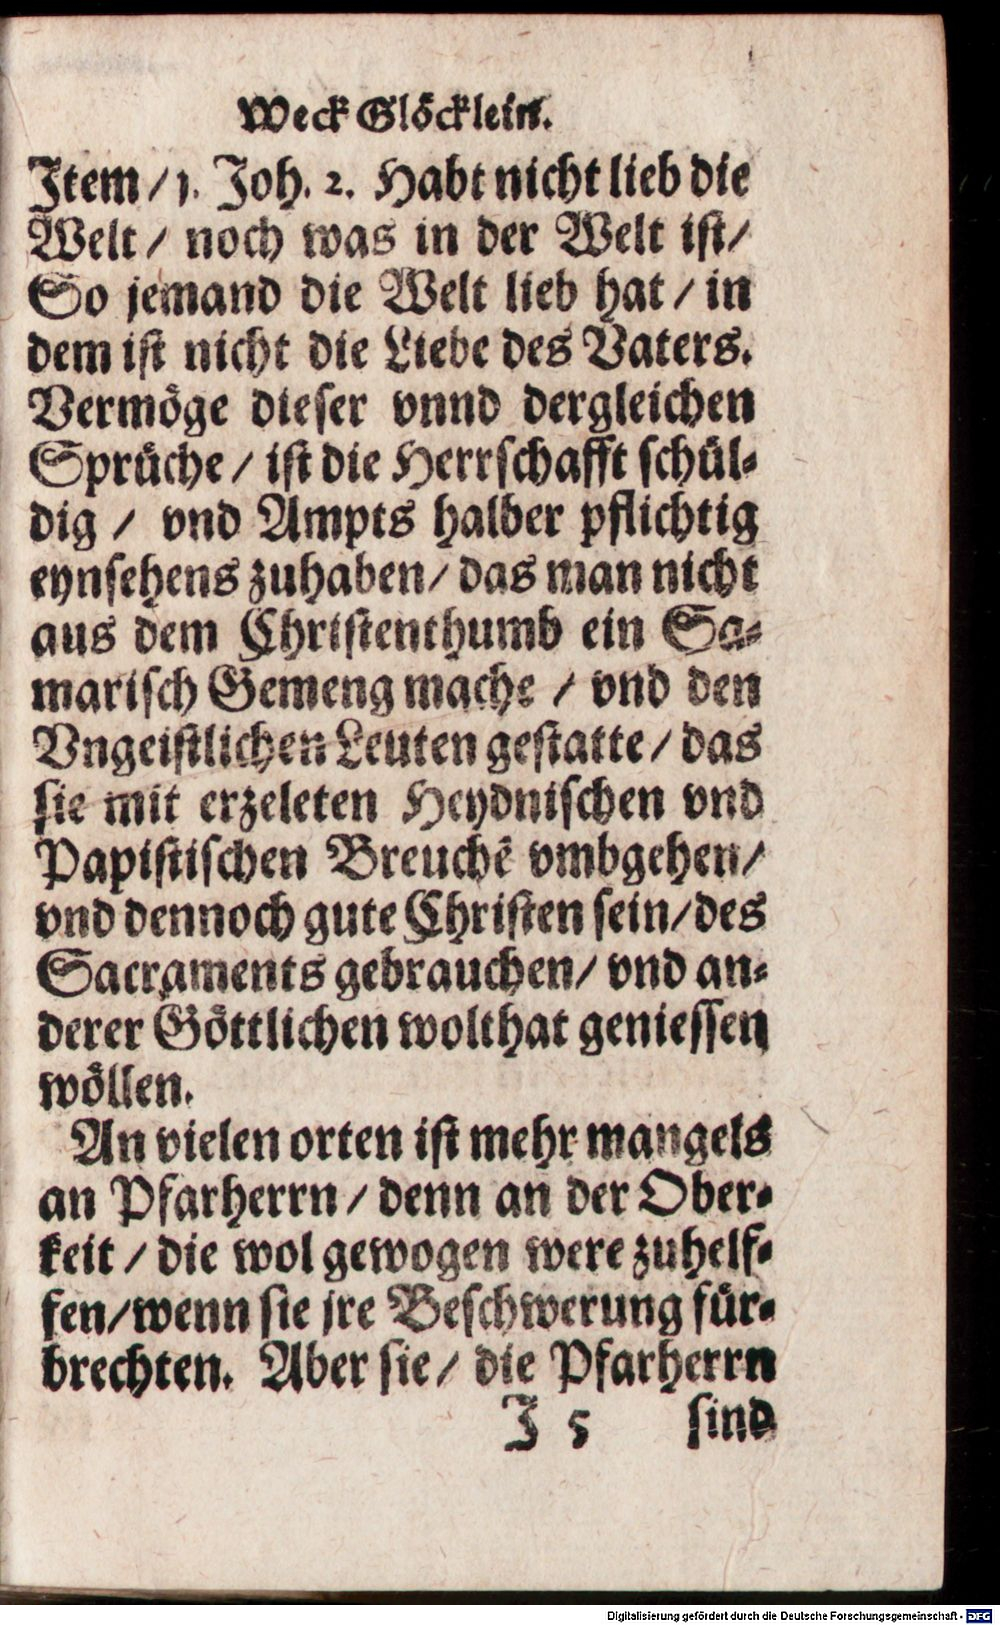 Weck Glöcklein.
Item / 1. Joh. 2. Habt nicht lieb die
Welt / noch was in der Welt ist /
So jemand die Welt lieb hat / in
dem ist nicht die Liebe des Vaters.
Vermöge dieser vnnd dergleichen
Sprüche / ist die Herrschafft schül-
dig / vnd Ampts halber pflichtig
eynsehens zuhaben / das man nicht
aus dem Christenthumb ein Sa-
marisch Gemeng mache / vnd den
Vngeistlichen Leuten gestatte / das
sie mit erzeleten Heydnischen vnd
Papistischen Breuchē vmbgehen /
vnd dennoch gute Christen sein / des
Sacraments gebrauchen / vnd an-
derer Göttlichen wolthat geniessen
wöllen.
An vielen orten ist mehr mangels
an Pfarherrn / denn an der Ober-
keit / die wol gewogen were zuhelf-
fen / wenn sie jre Beschwerung für-
brechten. Aber sie / die Pfarherrn
J 5 sind
Digitalisierung gefördert durch die Deutsche Forschungsgemeinschaft - DFG